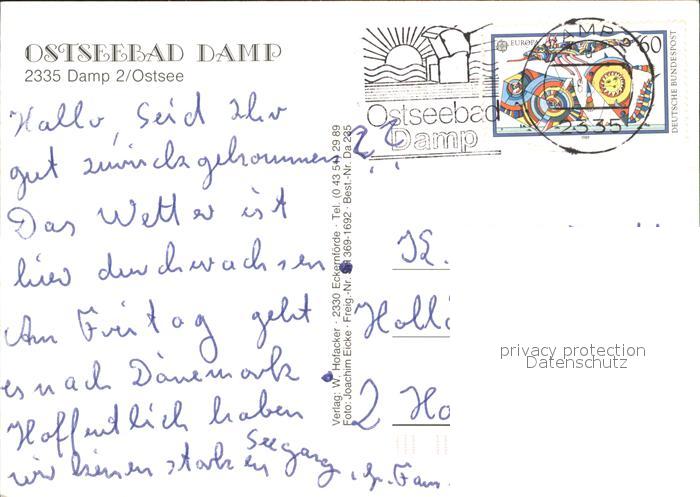 OSTSEEBAD DAMP
2335 Damp 2/Ostsee
Hallo, Seid Ihr
gut zurückgekommen??
Das Wetter ist
hier durchwachsen.
Am Freitag geht
es nach Dänemark.
Hoffentlich haben
wir keinen starken Seegang.
Fam.
Verlag: W. Hofacker · 2330 Eckernförde · Tel. (0 43 51) 4 29 89
Foto: Joachim Eicke · Freig.-Nr. SH 369-1692 · Best.-Nr. Da 235
Ostseebad
Damp
DAMP
2335
EUROPA
60
DEUTSCHE BUNDESPOST
1989
2 Ho
privacy protection
Datenschutz